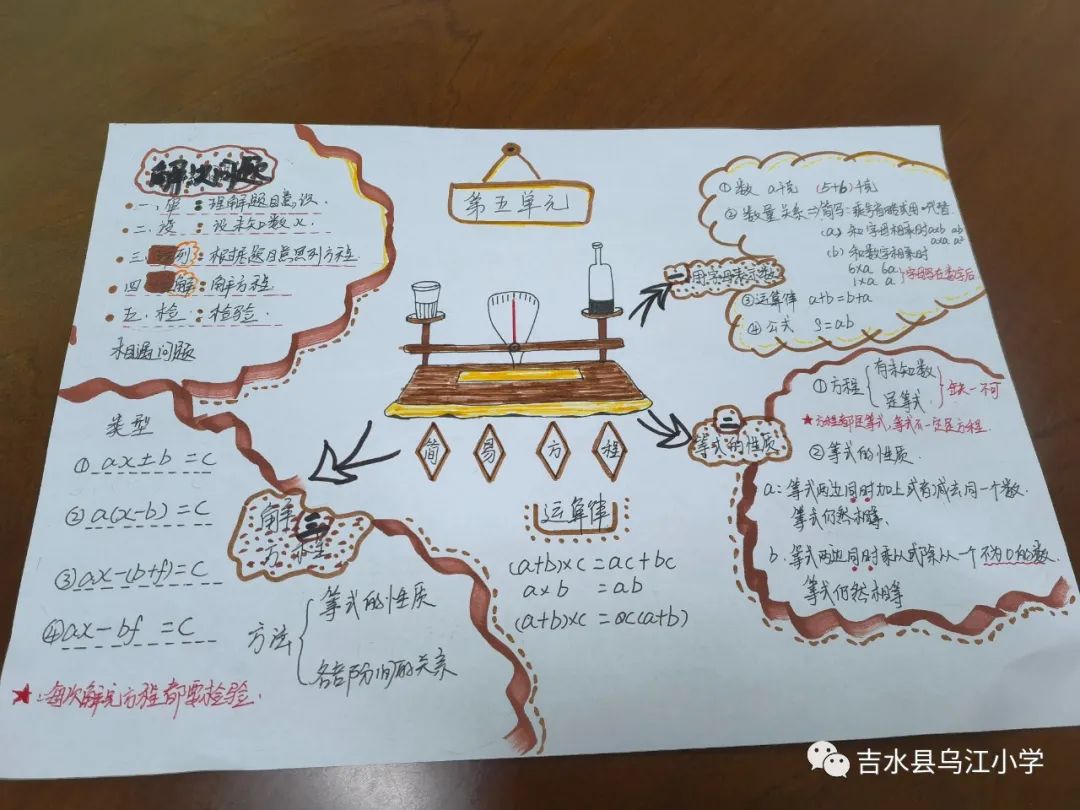 第五单元
解决问题
一、审：理解题目意义.
二、设：设未知数x.
三、列：根据题目意思列方程.
四、解：解方程.
五、检：检验.
相遇问题
一 用字母表示数
① 数 a千克 (5+b)千克
② 数量关系⇒简写：乘号省略或用·代替.
(a) 和字母相乘时 a×b ab
a×a a²
(b) 和数字相乘时
6×a 6a
1×a a
字母写在数字后
③运算律 a+b=b+a
④ 公式 S=ab
二 等式的性质
① 方程 有未知数
是等式.
缺一不可
★方程都是等式,等式不一定是方程.
② 等式的性质.
a：等式两边同时加上或者减去同一个数.
等式仍然相等.
b. 等式两边同时乘以或除以一个不为0的数.
等式仍然相等
简易方程
三 解方程
类型
① ax±b =c
② a(x-b) =c
③ ax-(b+f)=c
④ax-bf =c
方法
等式的性质
各部分间的关系
★：每次解完方程都要检验.
运算律
(a+b)×c =ac+bc
a×b =ab
(a+b)×c =
吉水县乌江小学